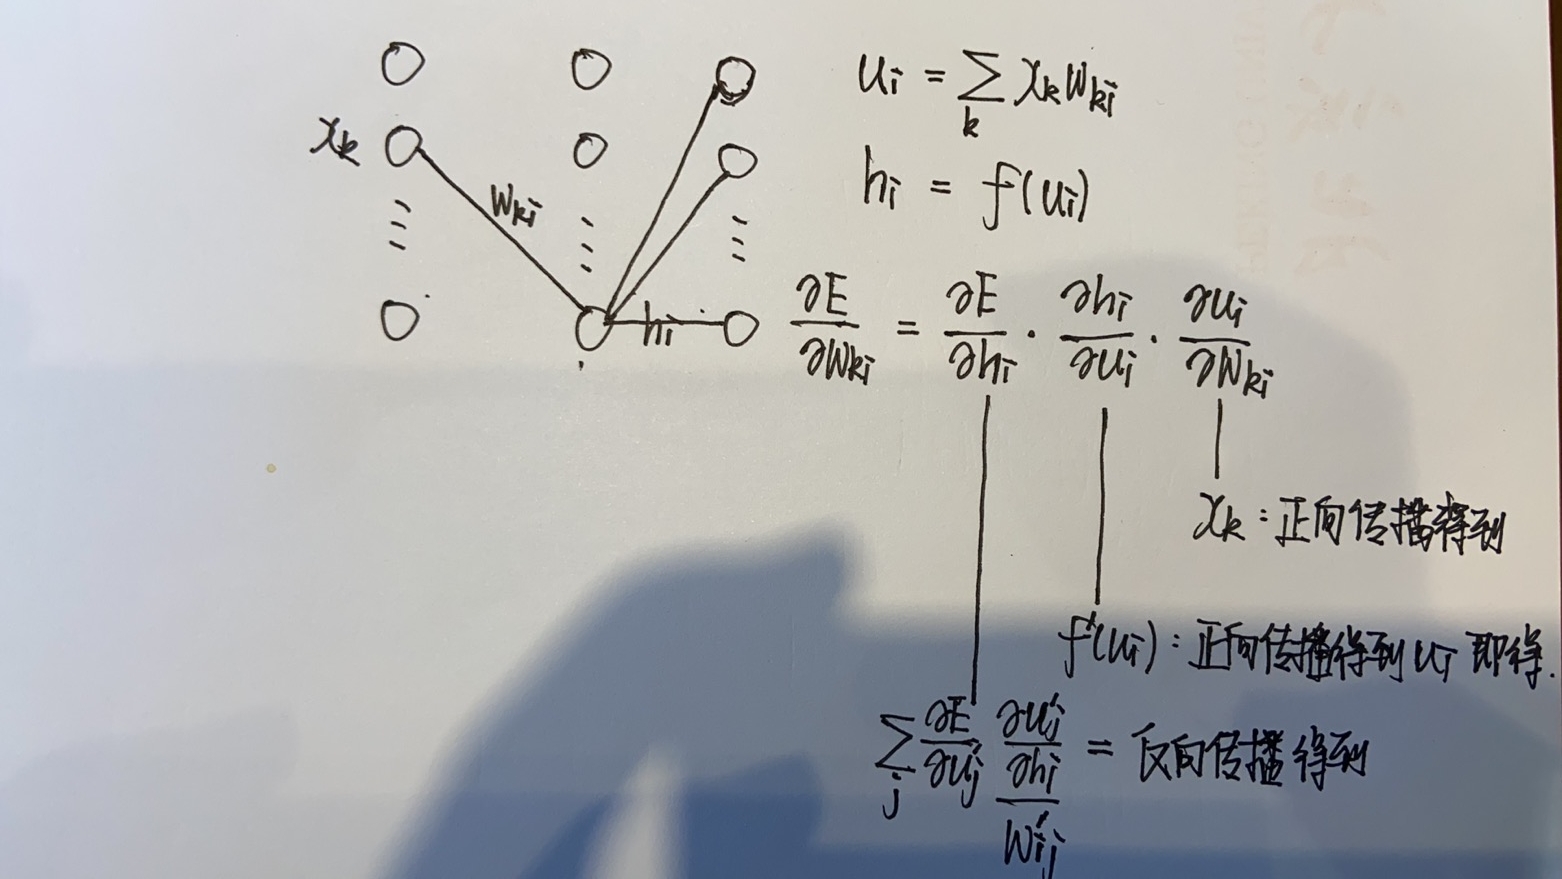 x_k
w_{ki}
h_i
u_i = \sum_k x_k w_{ki}
h_i = f(u_i)
\frac{∂E}{∂w_{ki}} = \frac{∂E}{∂h_i} · \frac{∂h_i}{∂u_i} · \frac{∂u_i}{∂w_{ki}}
x_k : 正向传播得到
f'(u_i) : 正向传播得到 u_i 即得.
\sum_j \frac{∂E}{∂u'_j} \frac{∂u'_j}{∂h_i} = 反向传播得到
w'_{ij}